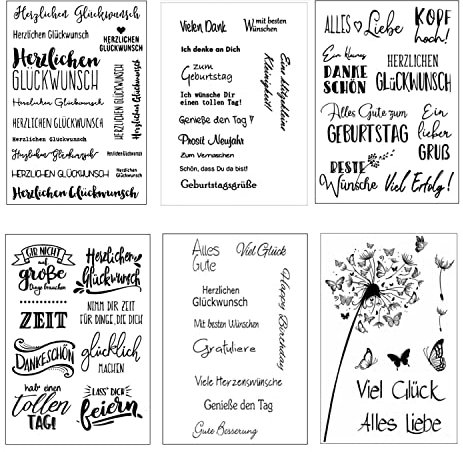 Herzlichen Glückwunsch
Herzlichen Glückwunsch
HERZLICHEN
GLÜCKWUNSCH
Herzlichen
GLÜCKWUNSCH
Herzlichen Glückwunsch
HERZLICHEN GLÜCKWUNSCH
Herzlichen Glückwunsch
Herzlichen Glückwunsch
HERZLICHEN GLÜCKWUNSCH
Herzlichen Glückwunsch
HERZLICHEN
GLÜCKWUNSCH
Herzlichen
Glückwunsch
Herzlichen
Glückwunsch
Herzlichen
Glückwunsch
Vielen Dank
mit besten
Wünschen
Ich denke an Dich
zum
Geburtstag
Ich wünsche Dir
einen tollen Tag!
Genieße den Tag
Prosit Neujahr
Zum Vernaschen
Schön, dass Du da bist!
Geburtstagsgrüße
Eine klitzekleine
Kleinigkeit!
ALLES Liebe
KOPF
hoch!
Ein kleines
DANKE
SCHÖN
HERZLICHEN
GLÜCKWUNSCH
Alles Gute zum
GEBURTSTAG
Ein
lieber
GRUß
BESTE
Wünsche
Viel Erfolg!
GIB NICHT
auf
große
Dinge brauchen
ZEIT
DANKESCHÖN
hab einen
tollen
TAG!
Herzlichen
Glückwunsch
NIMM DIR ZEIT
FÜR DINGE, DIE DICH
glücklich
MACHEN
LASS' DICH
feiern
Alles
Gute
Viel Glück
Herzlichen
Glückwunsch
Mit besten Wünschen
Gratuliere
Viele Herzenswünsche
Genieße den Tag
Gute Besserung
Happy Birthday
Viel Glück
Alles Liebe